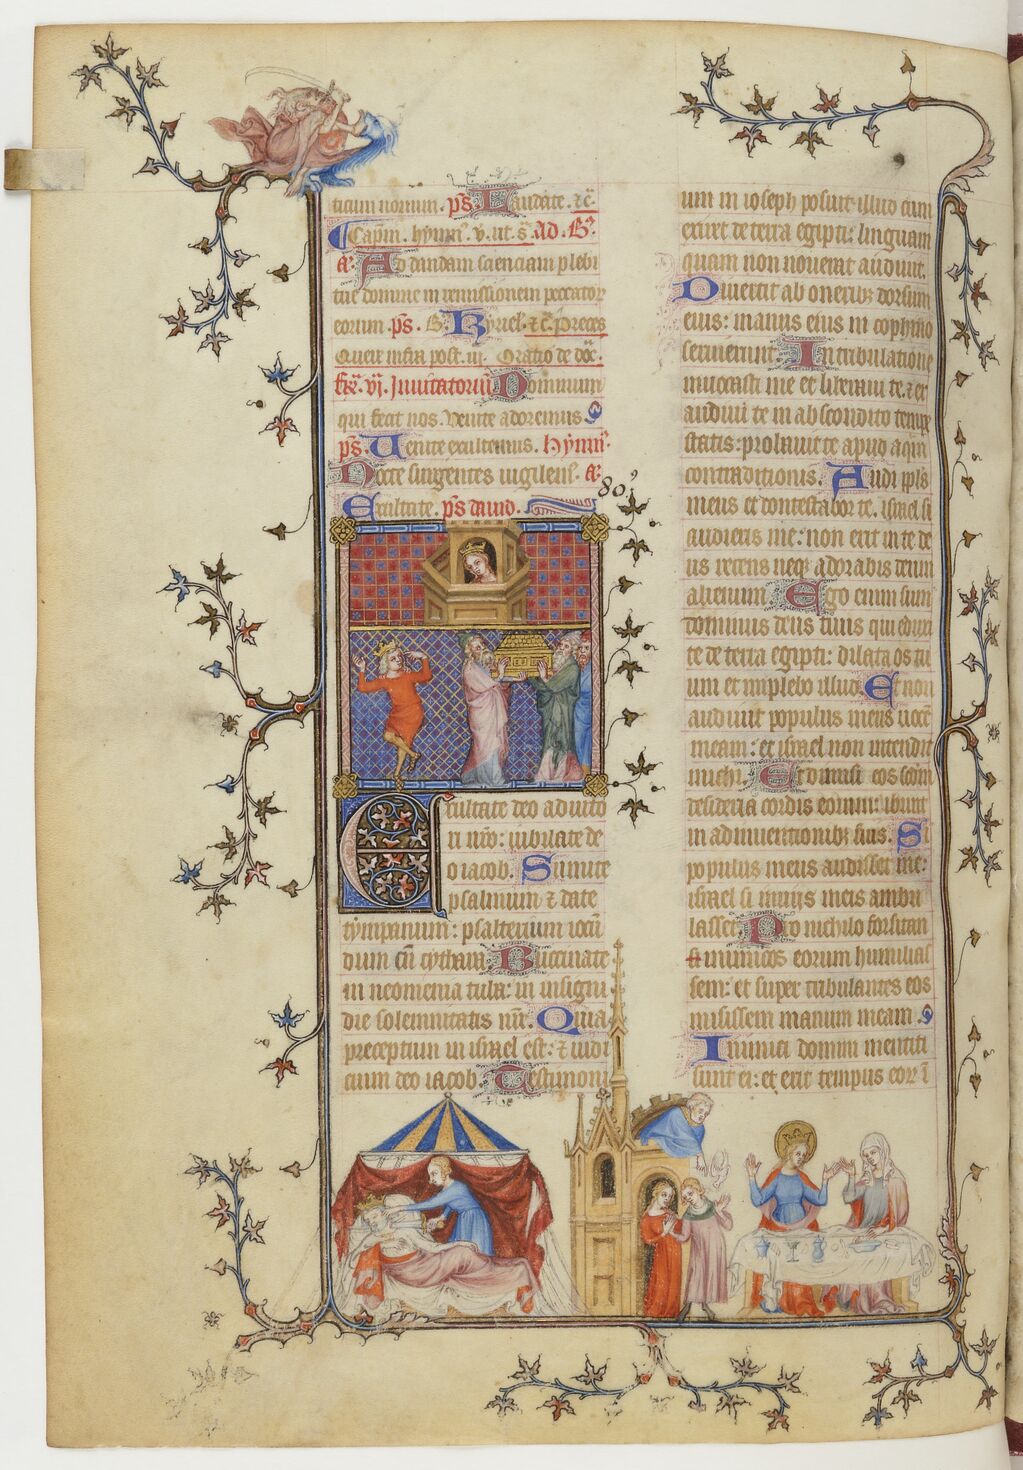 ticum norum. ps Laudate. etc̄.
Capm̄. hymn̄. v. ut. s̄. Ad. B̄.
a. Ad dandam scienciam plebi
tue domine in remissionem peccator
eorum. ps. B. Kyriel. etc̄. preces
Quere infra post. iii. Oratio de doc̄.
fr̄. vj. Invitatoriū Dominum
qui fecit nos. venite adoremus
ps. Venite exultemus. hymn̄.
Nocte surgentes vigilem̄. a.
80
Exultate. ps david.
Exultate deo adiuto
ri nr̄o: iubilate de
o iacob. Sumite
psalmum et date
tympanum: psalterium iocū
dum cū cythara. Buccinate
in neomenia tuba: in insigni
die solemnitatis nr̄i. Quia
preceptum in israel est: et iudi
cium deo iacob. Testimoni
um in ioseph posuit illud cum
exiret de terra egipti: linguam
quam non noverat audivit.
Divertit ab onerib; dorsum
eius: manus eius in cophino
servierunt. In tribulatione
invocasti me et liberavi te. et ex
audivi te in abscondito tempe
statis: probavi te apud aqm̄
contradictionis. Audi ppl's
meus et contestabor te. israel si
audieris me: non erit in te de
us recens neq; adorabis deum
alienum. Ego enim sum
dominus deus tuus qui eduxi
te de terra egipti: dilata os tu
um et implebo illud. Et non
audivit populus meus vocē
meam: et israel non intendit
michi. Et dimisi eos scd̄m
desideria cordis eorum: ibunt
in adinventionib; suis. Si
populus meus audisset me:
israel si in vijs meis ambu
lasset. Pro nichilo forsitan
inimicos eorum humilias
sem: et super tribulantes eos
misissem manum meam.
Inimici domini mentiti
sunt ei: et erit tempus eor̄ ī